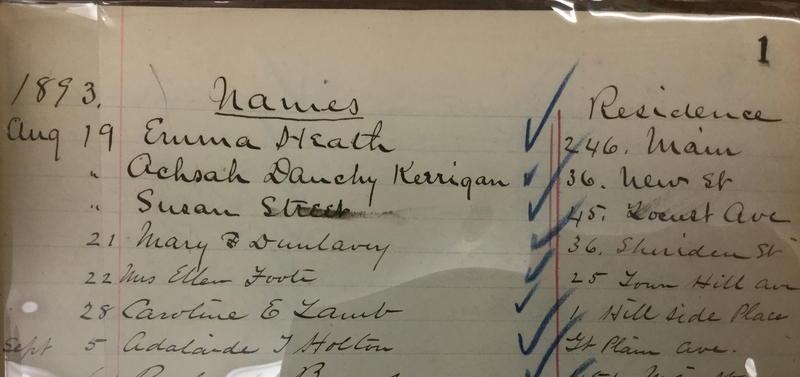 1
1893. Names Residence
Aug 19 Emma Heath 246. Main
" Achsah Danchy Kerrigan 36. New St
" Susan Street 45. Locust Ave
21 Mary B Dunlavey 36. Sheriden St
22 Mrs Ellen Foote 25 Town Hill ave
28 Caroline E Lamb 1 Hill side Place
Sept 5 Adalaide T Holton Gt Plain Ave.